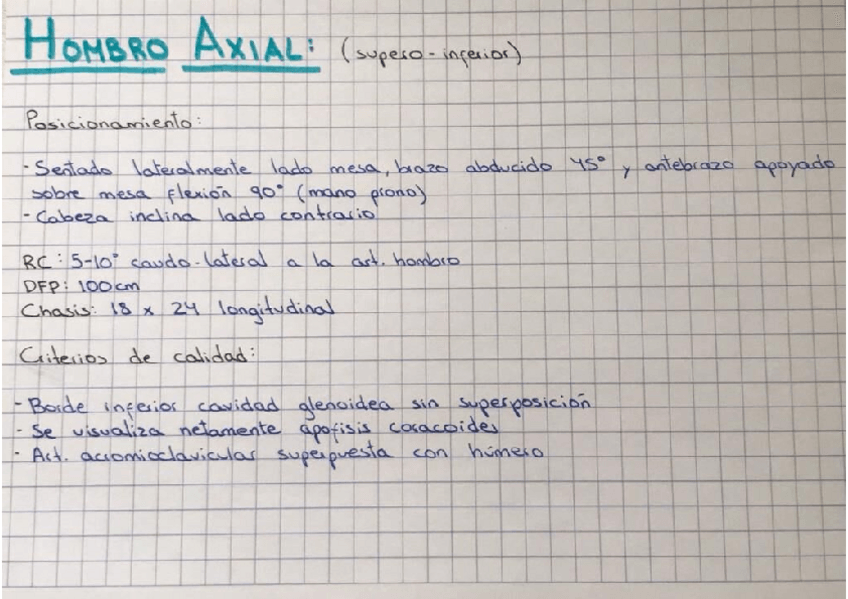 HOMBRO AXIAL: (supero-inferior)
Posicionamiento:
- Sentado lateralmente lado mesa, brazo abducido 45° y antebrazo apoyado
sobre mesa flexión 90° (mano prono)
- Cabeza inclina lado contrario
RC: 5-10° caudo-lateral a la art. hombro
DFP: 100cm
Chasis: 18 x 24 longitudinal
Criterios de calidad:
- Borde inferior cavidad glenoidea sin superposición
- Se visualiza netamente ápofisis coracoides
- Art. acromioclavicular superpuesta con húmero